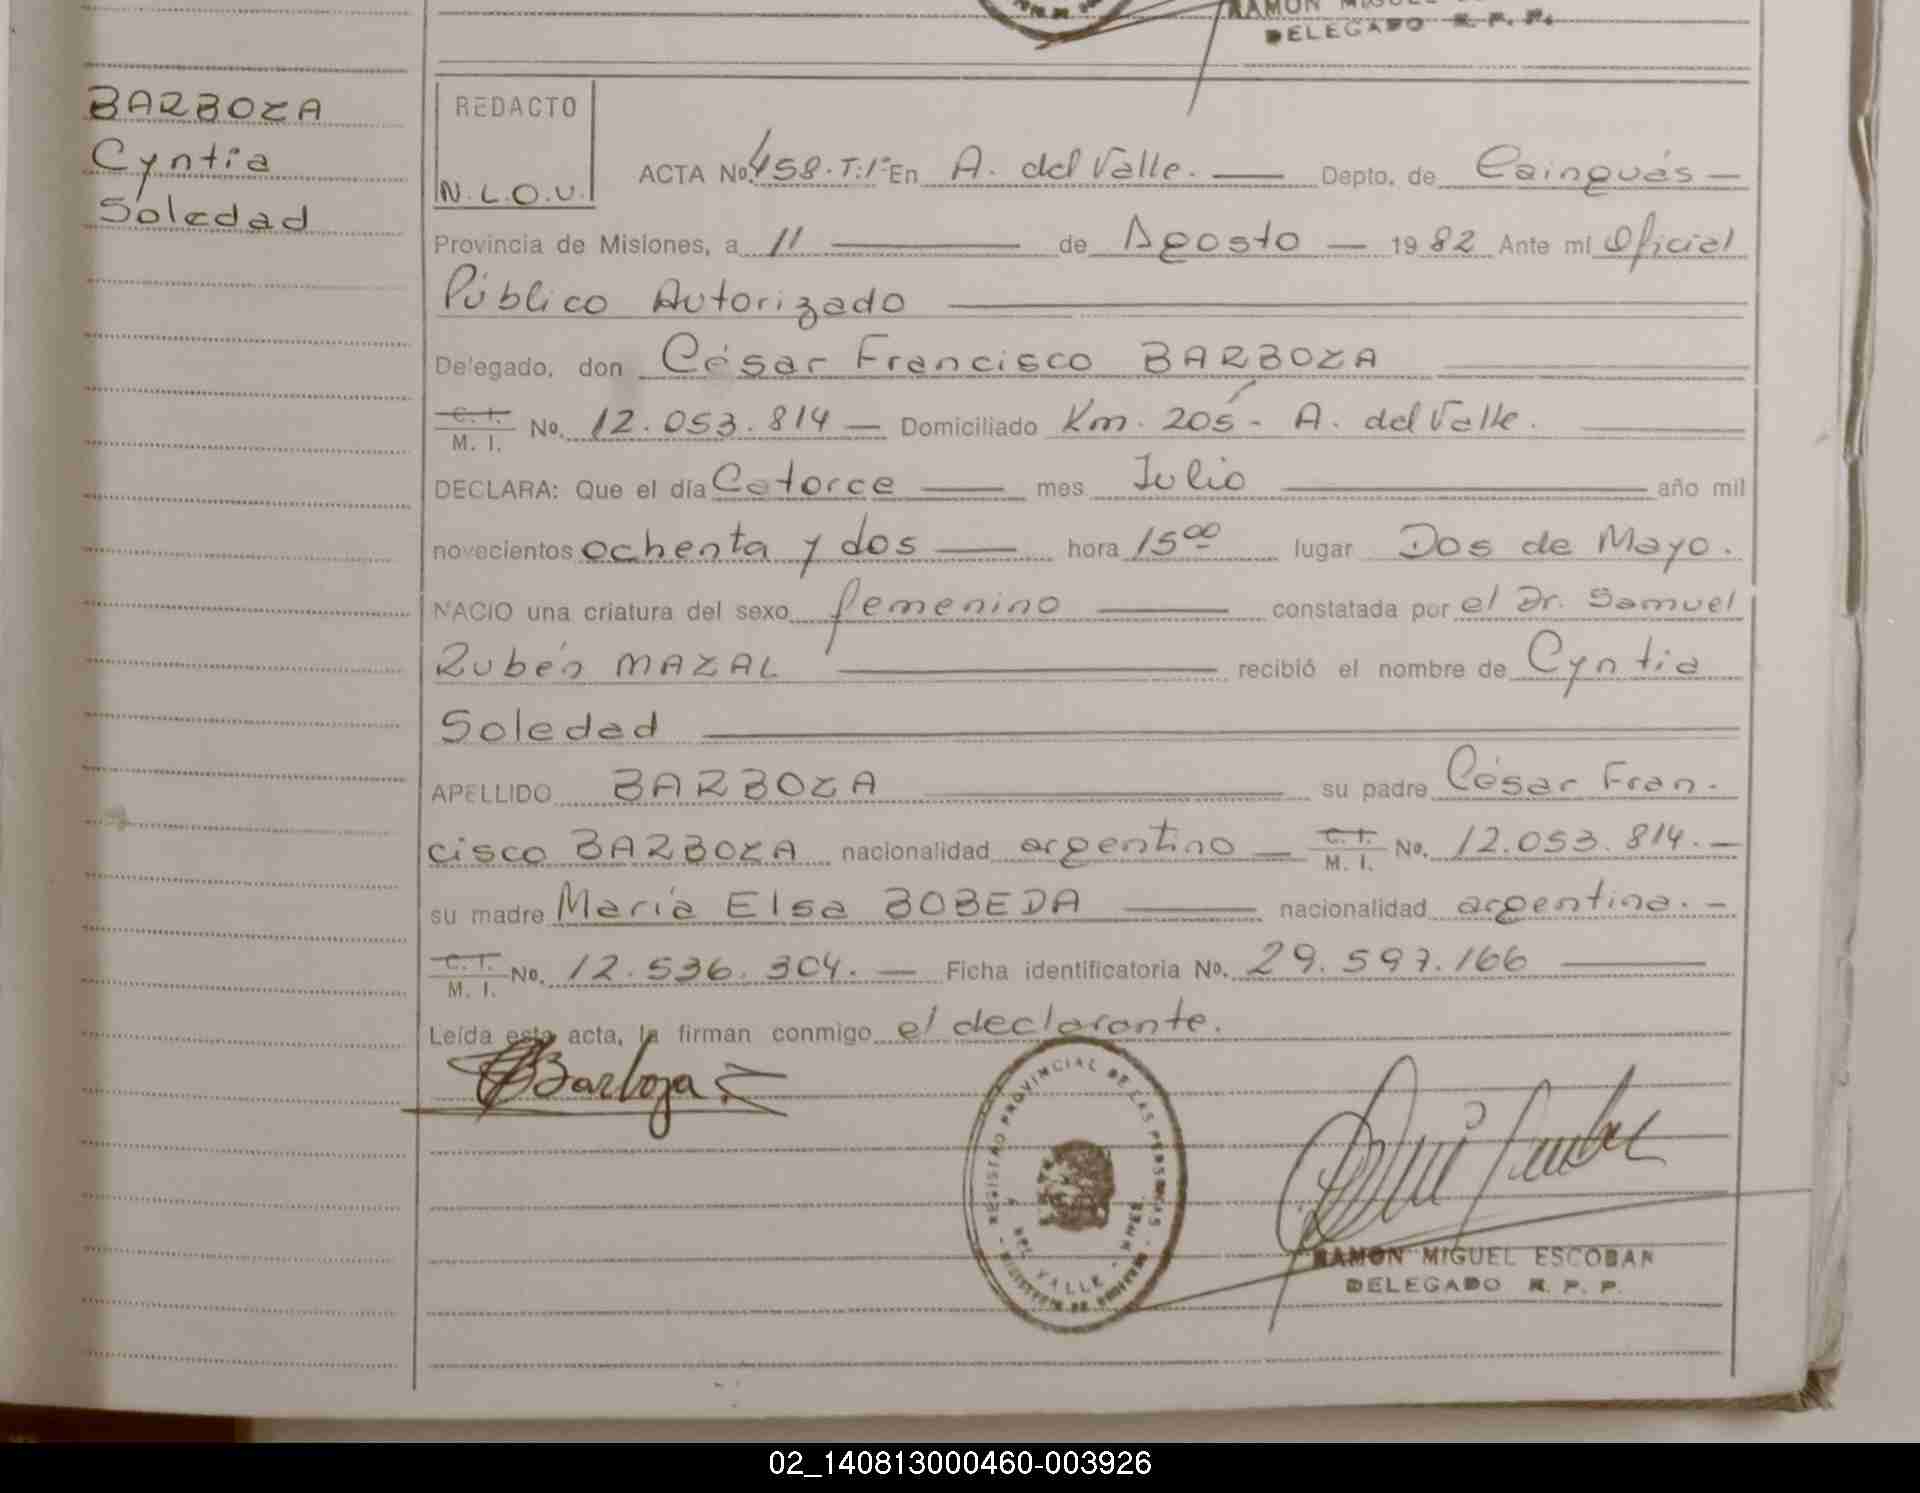 RAMON MIGUEL
DELEGADO R. P. P.
BARBOZA
Cyntia
Soledad
REDACTO
N.L.O.U.
ACTA No. 458.T:1º En A. del Valle. Depto, de Cainguás
Provincia de Misiones, a 11 de Agosto 1982 Ante mí Oficial
Público Autorizado
Delegado, don César Francisco BARBOZA
C. I.
M. I. No. 12.053.814 Domiciliado Km. 205 - A. del Valle.
DECLARA: Que el día Catorce mes Julio año mil
novecientos ochenta y dos hora 15⁰⁰ lugar Dos de Mayo.
NACIO una criatura del sexo femenino constatada por el Dr. Samuel
Rubén MAZAL recibió el nombre de Cyntia
Soledad
APELLIDO BARBOZA su padre César Fran-
cisco BARBOZA nacionalidad argentino C. I. M. I. No. 12.053.814.
su madre María Elsa BOBEDA nacionalidad argentina.
C. I.
M. I. No. 12.536.304. Ficha identificatoria No. 29.597.166
Leída esta acta, la firman conmigo el declarante.
Barboza
REGISTRO PROVINCIAL DE LAS PERSONAS
DEL VALLE
RAMON MIGUEL ESCOBAR
DELEGADO R. P. P.
02_140813000460-003926